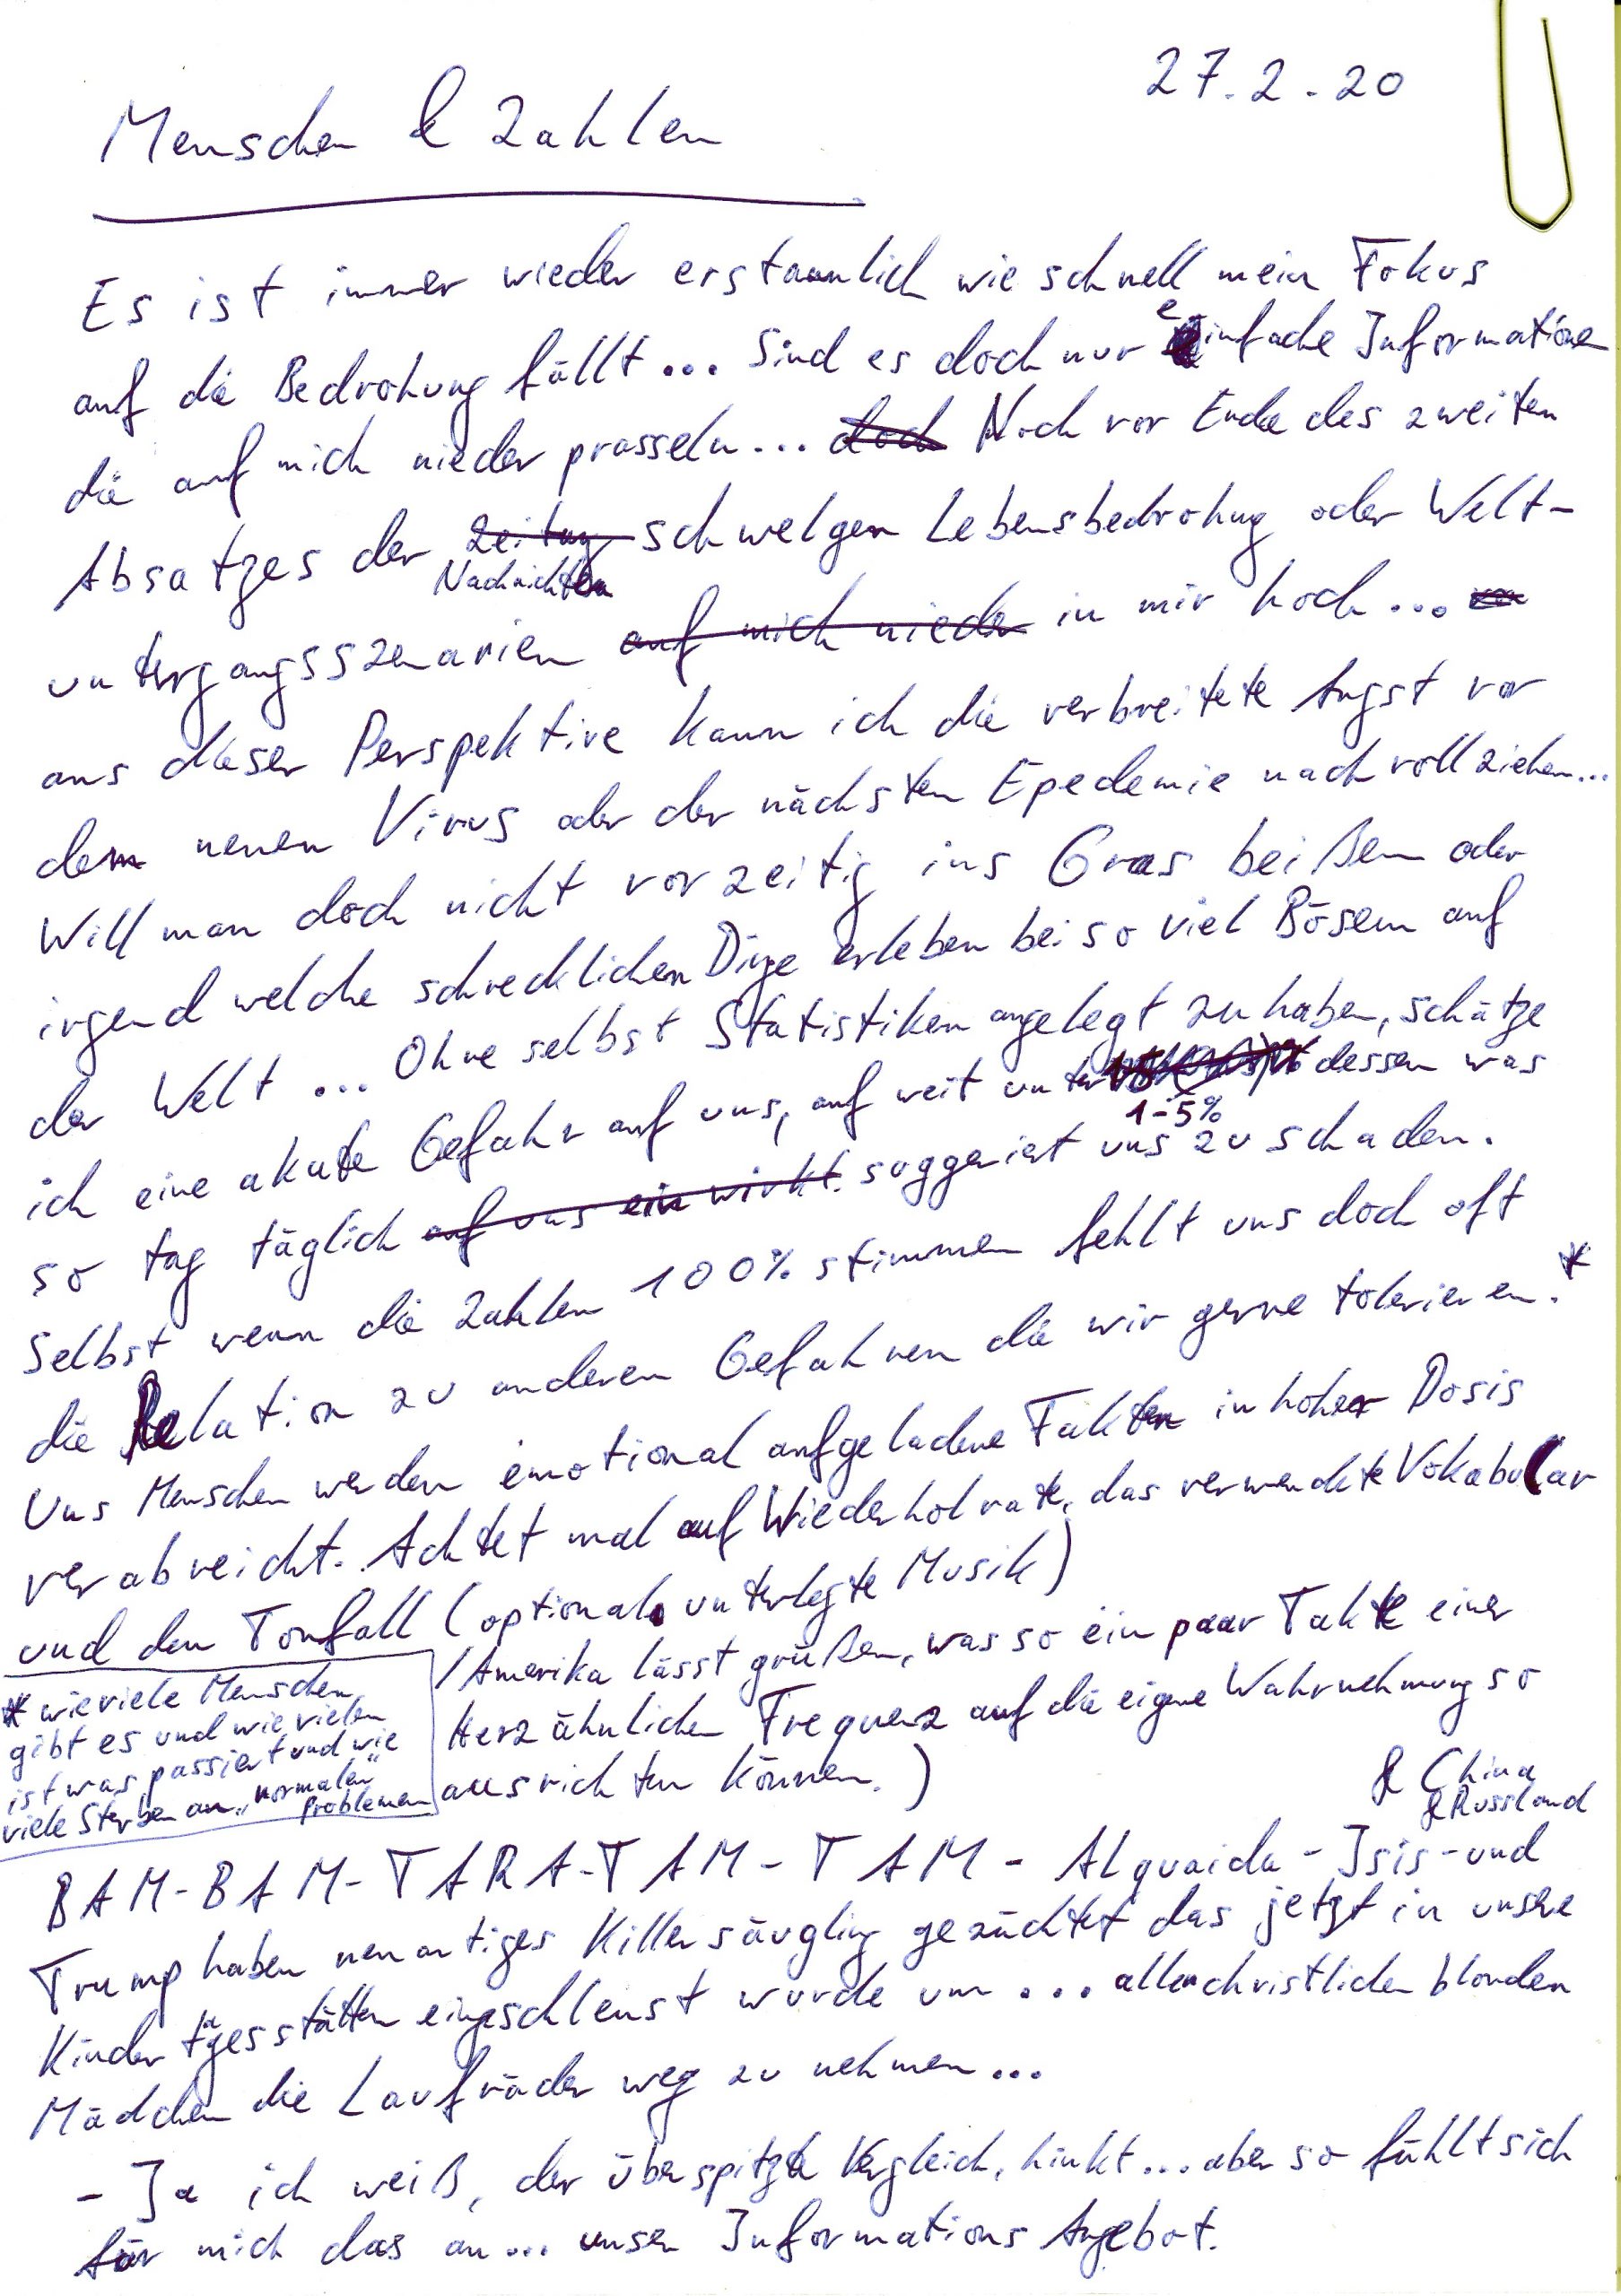 27.2.20
Menschen & Zahlen
Es ist immer wieder erstaunlich wie schnell mein Fokus
auf die Bedrohung fällt... Sind es doch nur einfache Informationen
die auf mich nieder prasseln... doch Noch vor Ende des zweiten
Absatzes der Zeitung schwelgen Lebensbedrohung oder Welt-
Nachrichten
untergangsszenarien auf mich nieder in mir hoch...
aus dieser Perspektive kann ich die verbreitete Angst vor
dem neuen Virus oder der nächsten Epedemie nachvollziehen...
Will man doch nicht vorzeitig ins Gras beißen oder
irgend welche schrecklichen Dinge erleben bei so viel Bösem auf
der Welt... Ohne selbst Statistiken angelegt zu haben, schätze
ich eine akute Gefahr auf uns, auf weit unter dessen was
1-5%
so tag täglich auf uns einwirkt. suggeriert uns zu schaden.
Selbst wenn die Zahlen 100% stimmen fehlt uns doch oft
die Relation zu anderen Gefahren die wir gerne tolerieren.*
Uns Menschen werden emotional aufgeladene Fakten in hoher Dosis
verabreicht. Achtet mal auf Wiederholrate, das verwendete Vokabular
und den Tonfall (optional unterlegte Musik)
/Amerika lässt grüßen, was so ein paar Takte einer
Herz ähnlichen Frequenz auf die eigene Wahrnehmung so
ausrichten können.)
* wieviele Menschen
gibt es und wie vielen
ist was passiert und wie
viele Sterben an „normalen"
Problemen
& China
& Russland
BAM-BAM-TARA-TAM-TAM- Alquaida-Isis-und
Trump haben neuartiges Killersäugling gezüchtet das jetzt in unsere
Kinder tagesstätten eingeschleust wurde um... allen christlichen blonden
Mädchen die Laufräder weg zu nehmen...
- Ja ich weiß, der überspitzte Vergleich, hinkt... aber so fühlt sich
für mich das an... unser Informations Angebot.